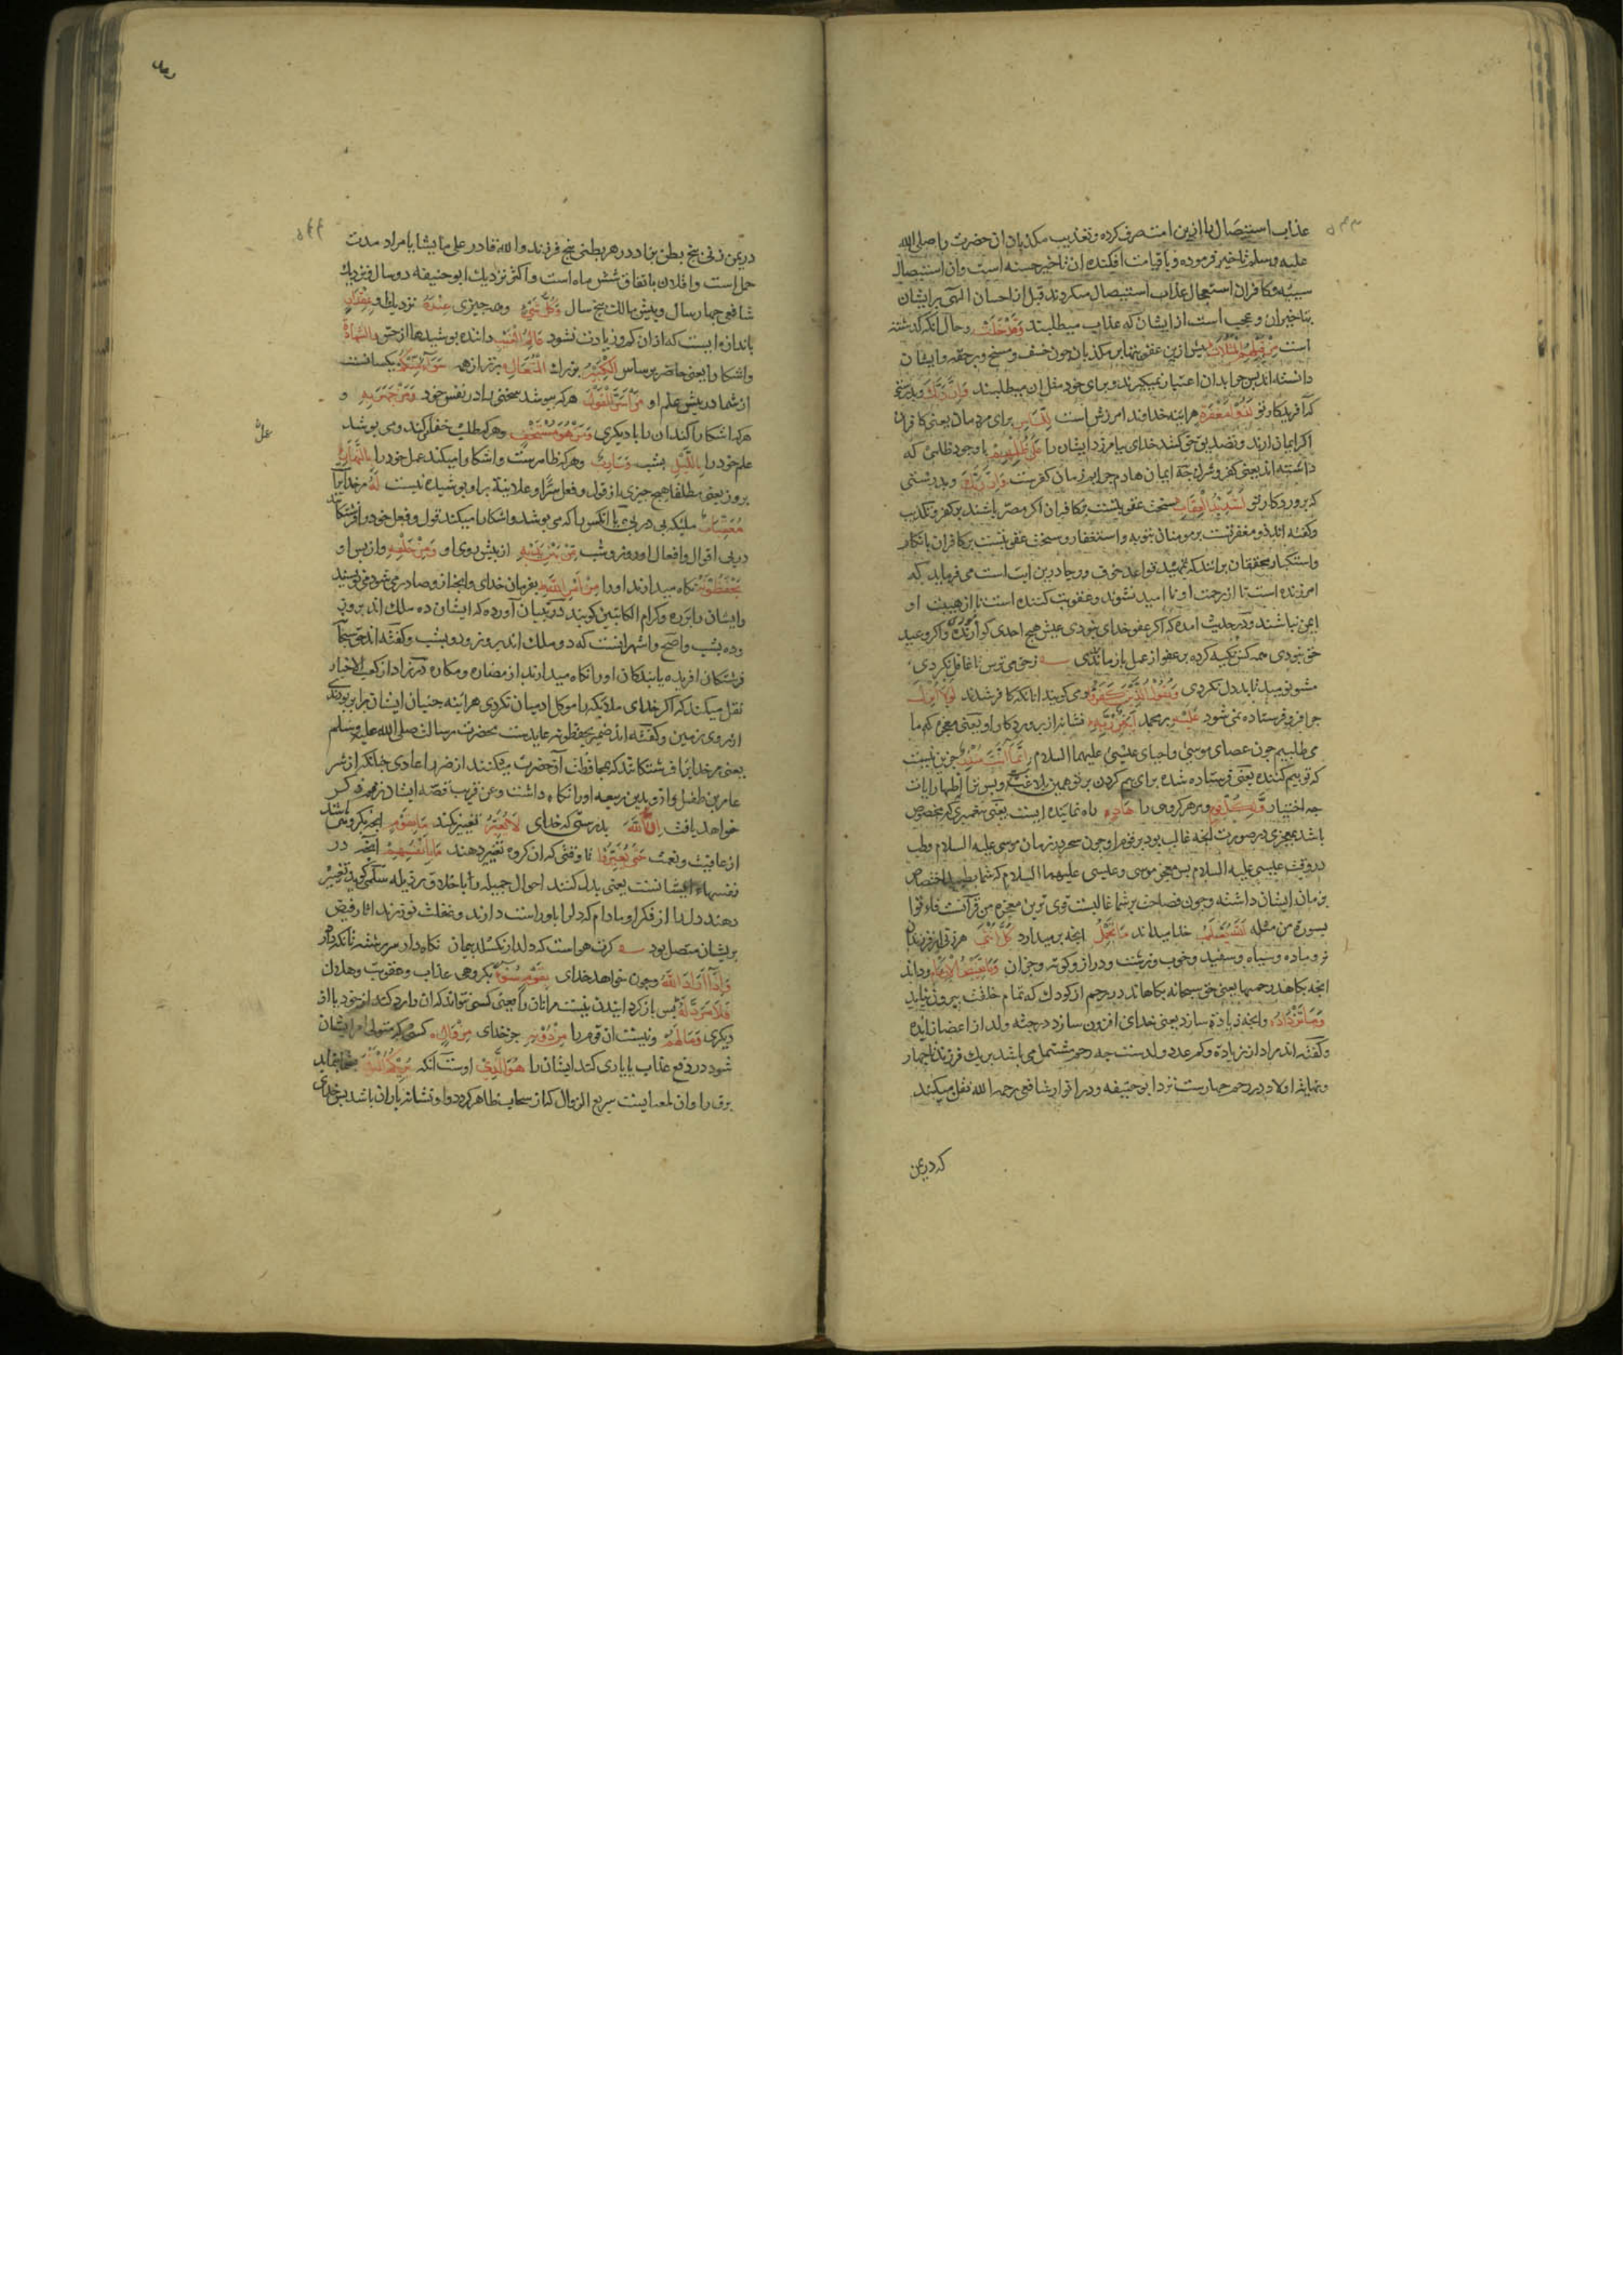 عذاب استیصال را ازین امت صرف کرده و تعذیب مکذبان آن حضرت را صلی الله
علیه وسلم تاخیر فرموده و با قیامت افکنده آن تاخیر حسنه است و آن استیصال
سیئه و کافران استعجال عذاب استیصال میکردند قبل از احسان الهی بر ایشان
بتاخیر آن و عجیب است از ایشان که عذاب میطلبند وَقَدْ خَلَتْ و حال آنکه گذشته
است مِنْ قَبْلِهِمُ الْمَثُلَاتُ پیش ازین عقوبتها بر مکذبان چون خسف و مسخ و رجفه و ایشان
دانسته اند پس چرا بدان اعتبار نمیگیرند و برای خود مثل آن میطلبند وَاِنَّ رَبَّكَ و بدرستی
که آفریدکار تو لَذُو مَغْفِرَةٍ هر آینه خداوند آمرزش است لِلنَّاسِ برای مردمان یعنی کافران
اگر ایمان آرند و تصدیق حق کنند خدای بیامرزد ایشان را عَلٰى ظُلْمِهِمْ با وجود ظلمی که
داشته اند یعنی کفر و شرک چه ایمان هادم جرایم زمان کفرست وَاِنَّ رَبَّكَ و بدرستی
که پروردکار تو لَشَدِيدُ الْعِقَابِ سخت عقوبتست بر کافران اگر مصر باشند بر کفر و تکذیب
و کفته اند ذو مغفرتست بر مومنان بتوبه و استغفار و سخت عقوبتست بر کافران بانکار
و استکبار و محققان برانند که تمهید قواعد خوف و رجا درین آیت است می فرماید که
آمرزنده است تا از رحمت او نا امید نشوند و عقوبت کننده است تا از هیبت او
ایمن نباشند و در حدیث آمده که اگر عفو خدای نبودی عیش هیچ احدی گوارنده و اگر وعید
حق نبودی همه کس تکیه کرده بر عفو از عمل باز ماندی زحق می ترس تا غافل نکردی
مشو نومید تا بد دل نکردی وَيَقُولُ الَّذِينَ كَفَرُوا و می گویند آنانکه کافر شدند لَوْلَا اُنْزِلَ
چرا فرو فرستاده نمی شود عَلَيْهِ بر محمد اٰيَةٌ مِنْ رَبِّهِ نشانه از پروردکار او یعنی معجزه که ما
می طلبیم چون عصای موسی و احیای عیسی علیهما السلام اِنَّمَا اَنْتَ مُنْذِرٌ جز این نیست
که تو بیم کننده یعنی فرستاده شده برای بیم کردن بر تو همین بلاغست و بس ترا اظهار آیات
چه اختیار وَلِكُلِّ قَوْمٍ و مر هر گروهی را هَادٍ راه نماینده ایست یعنی پیغمبری که مخصوص
باشد بمعجزی در صورت آنچه غالب بود بر قوم او چون سحر در زمان موسی علیه السلام و طب
در وقت عیسی علیه السلام پس معجز موسی و عیسی علیهما السلام که شما بطلبید اختصاص
بزمان ایشان داشته و چون فصاحت بر شما غالبست قوی ترین معجزه من قرآنست فاءتوا
بسورة من مثله اَللّٰهُ يَعْلَمُ خدا میداند مَا تَحْمِلُ آنچه بر میدارد كُلُّ اُنْثٰى هر زنی از فرزندان
نر و ماده و سیاه و سفید و خوب و زشت و دراز و کوته و جز آن وَمَا تَغِيضُ الْاَرْحَامُ و داند
آنچه بکاهد رحمها یعنی حق سبحانه بکاهاند در رحم از کودک که تمام خلقت بیرون نیاید
وَمَا تَزْدَادُ و آنچه زیاده سازد یعنی خدای افزون سازد در جثه ولد از اعضا زایده
و کفته اند مراد از زیاده و کم عدد ولدست چه رحم مشتمل می باشد بر یک فرزند تا چهار
و نهایة اولاد در رحم چهارست نزد ابو حنیفه و در انوار شافعی رحمه الله نقل میکند
که در یمن
در یمن زنی پنج بطن بزاد در هر بطنی پنج فرزند و الله قادر علی ما یشا یا مراد مدت
حمل است و اقل آن باتفاق شش ماه است و اکثر نزدیک ابو حنیفه دو سال و نزدیک
شافعی چهار سال و پیش مالک پنج سال وَكُلُّ شَيْءٍ و همه چیزی عِنْدَهُ نزدیک او بِمِقْدَارٍ
باندازه ایست که از آن کم و زیادت نشود عَالِمُ الْغَيْبِ داننده پوشیدها از حس وَالشَّهَادَةِ
و آشکارا یعنی حاضر بر حس الْكَبِيرُ بزرگ الْمُتَعَالِ برتر از همه سَوَاءٌ مِنْكُمْ یکسانست
از شما در پیش علم او مَنْ اَسَرَّ الْقَوْلَ هر که بپوشد سخنی را در نفس خود وَمَنْ جَهَرَ بِهِ و
هر که آشکارا کند آن را با دیگری وَمَنْ هُوَ مُسْتَخْفٍ و هر که طلب خفا کند و می پوشد
عمل خود را بِاللَّيْلِ بشب وَسَارِبٌ و هر که ظاهرست و آشکارا میکند عمل خود را بِالنَّهَارِ
بروز یعنی مطلقا هیچ چیزی از قول و فعل سرّا و علانیة بر او پوشیده نیست لَهُ مر خدایرا
مُعَقِّبَاتٌ ملیکه پی در پی یا آنکس را که می پوشد و آشکارا میکند قول و فعل خود را فرشتکانند
در پی اقوال و افعال او روز و شب مِنْ بَيْنِ يَدَيْهِ از پیش روی او وَمِنْ خَلْفِهِ و از پس او
يَحْفَظُونَهُ نکاه میدارند او را مِنْ اَمْرِ اللّٰهِ بفرمان خدای و آنچه از و صادر می شود می نویسند
و ایشان را برره و کرام الکاتبین کویند در تبیان آورده که ایشان ده ملک اند بروز
و ده بشب و اصح و اشهر آنست که دو ملک اند بروز و دو بشب و کفته اند حق سبحانه
فرشتکان آفریده تا بندکان او را نکاه میدارند از مضاره و مکاره از کعب الاخبار
نقل میکند که اگر خدای ملائکه را موکل آدمیان نکردی هر آینه جنیان ایشان را بربودندی
از روی زمین و کفته اند ضمیر یحفظونه عایدست بحضرت رسالت صلی الله علیه وسلم
یعنی مر خدایرا فرشتکانند که محافظت آن حضرت میکنند از ضرر اعادی چنانکه از شر
عامر بن طفیل و ازبد بن ربیعه او را نکاه داشت و عن قریب قصه ایشان ذکر
خواهد یافت اِنَّ اللّٰهَ بدرستی که خدای لَا يُغَيِّرُ تغییر نکند مَا بِقَوْمٍ آنچه بکروهی باشد
از عافیت و نعمت حَتّٰى يُغَيِّرُوا تا وقتی که آن کروه تغییر دهند مَا بِاَنْفُسِهِمْ آنچه در
نفسهای ایشانست یعنی بدل کنند احوال جمیله را باخلاق رذیله سلمی کوید تغییر
دهند دل را از فکر او مادام که دل را با او راست دارند و بغفلت نورزند آثار فیض
بریشان متصل بود کرت هواست که دلدار نکسلد پیمان نکاه دار سر رشته تا نکه دارد
وَاِذَا اَرَادَ اللّٰهُ و چون خواهد خدای بِقَوْمٍ سُوءًا بکروهی عذاب و عقوبت و هلاک
فَلَا مَرَدَّ لَهُ پس باز کردانیدن نیست مر آن را یعنی کسی نتواند که آن را رد کند از خود یا از
دیگری وَمَا لَهُمْ و نیست آن قوم را مِنْ دُونِهِ جز خدای مِنْ وَالٍ کسی که متولی امر ایشان
شود در دفع عذاب یا یاری کند ایشان را هُوَ الَّذِي اوست آنکه يُرِيكُمُ الْبَرْقَ بنماید
برق را و آن لمعانیست سریع الزوال که از سحاب ظاهر کردد و او نشانه باران باشد پس خدای